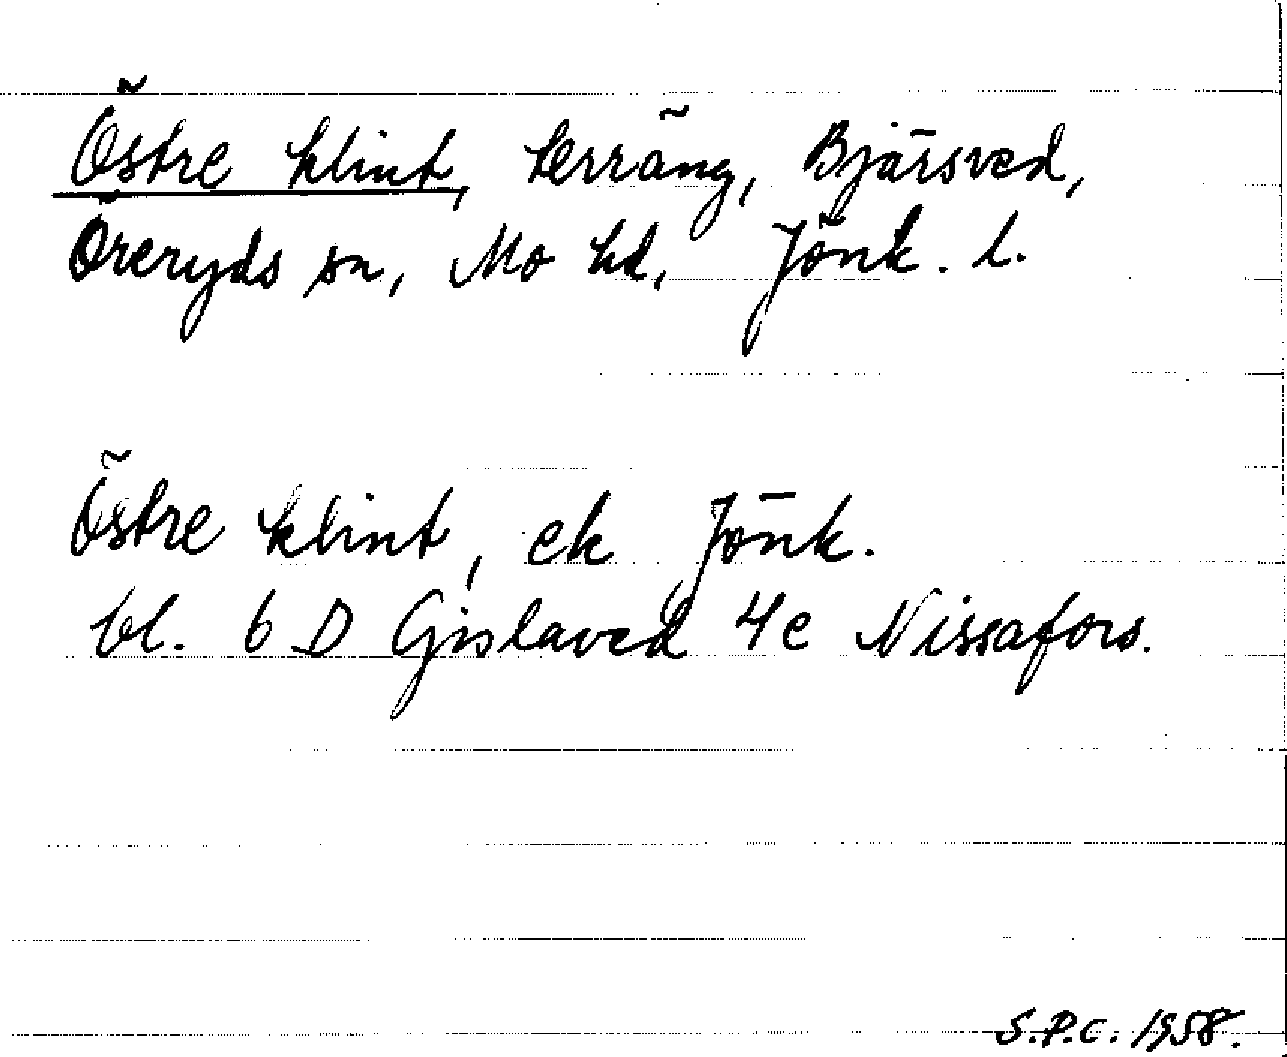 Östre klint, terräng, Bjärsved,
Öreryds sn, Mo hd, Jönk. l.
Östre klint, ek Jönk.
bl. 6 D Gislaved 4e Nissafors.
S.P.C. 1958.